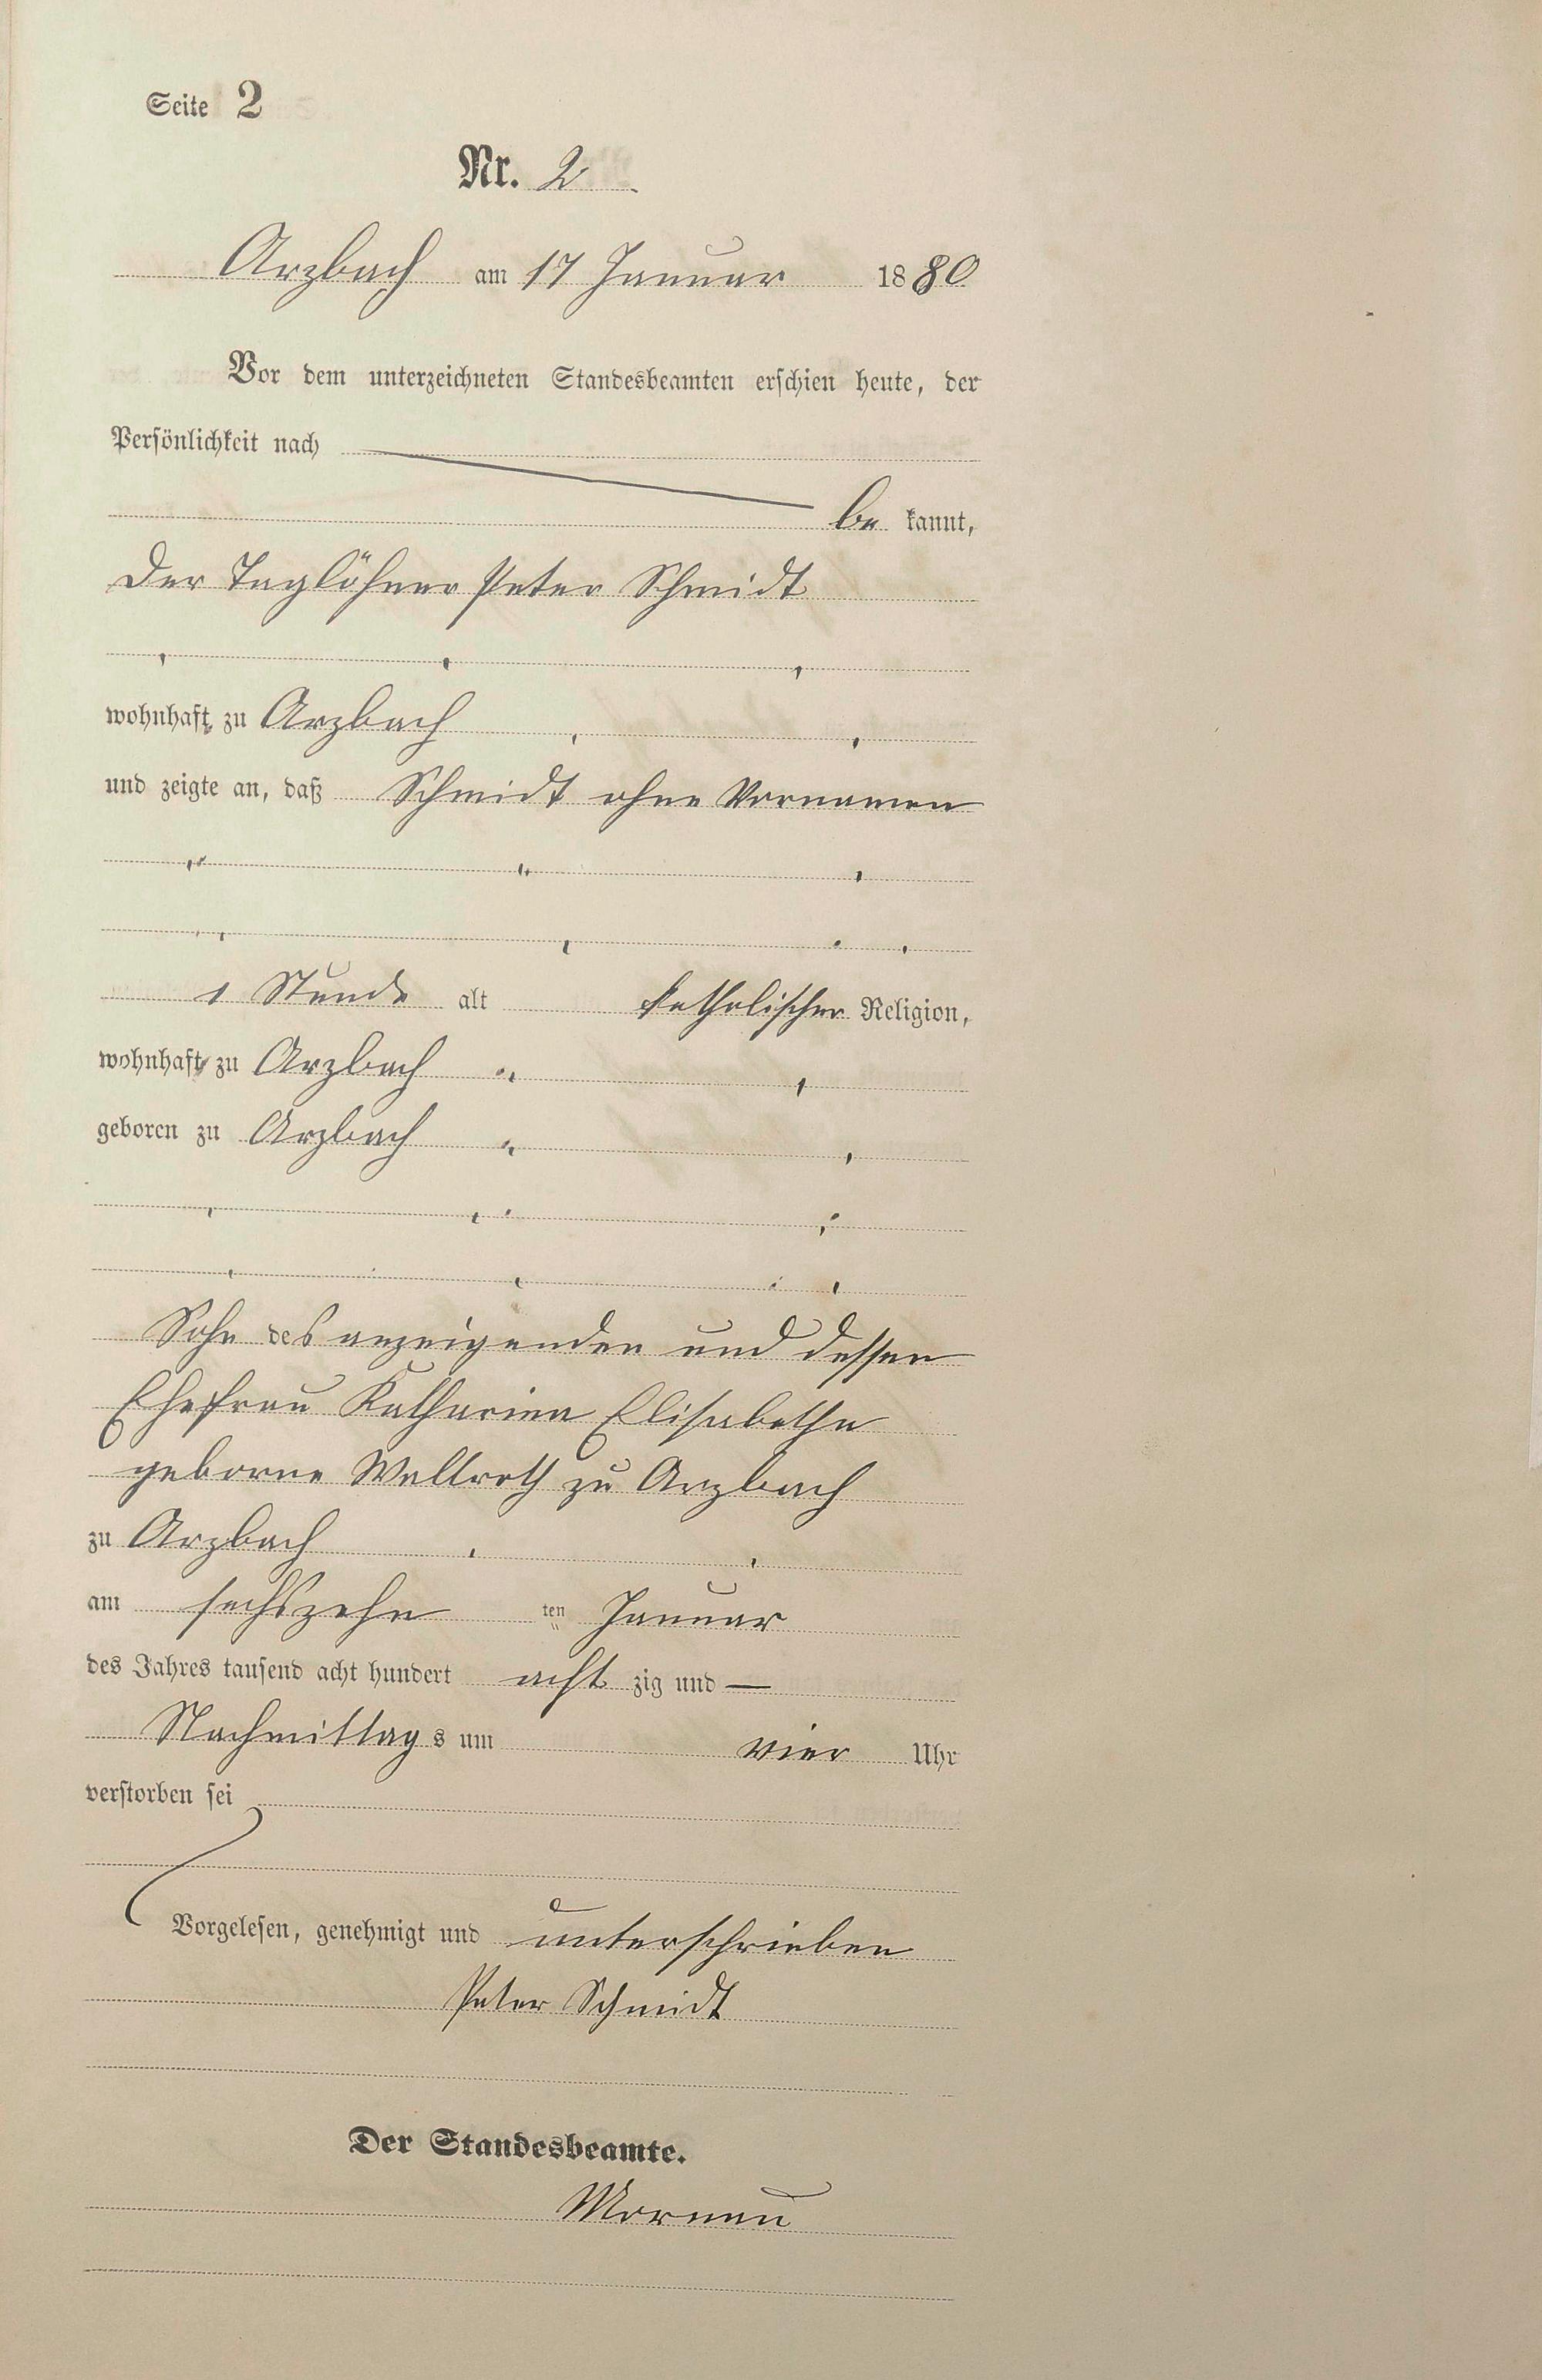 Seite 2
Nr. 2
Arzbach am 17 Januar 1880
Vor dem unterzeichneten Standesbeamten erschien heute, der
Persönlichkeit nach
be kannt,
Der Taglöhner Peter Schmidt
wohnhaft zu Arzbach
und zeigte an, daß Schmidt ohne Vornamen
1 Stunde alt katholischer Religion,
wohnhaft zu Arzbach
geboren zu Arzbach
Sohn des anzeigenden und dessen
Ehefrau Katharina Elisabetha
geborne Wallroth zu Arzbach
zu Arzbach
am sechszehn ten Januar
des Jahres tausend acht hundert acht zig und —
Nachmittag s um vier Uhr
verstorben sei
Vorgelesen, genehmigt und unterschrieben
Peter Schmidt
Der Standesbeamte.